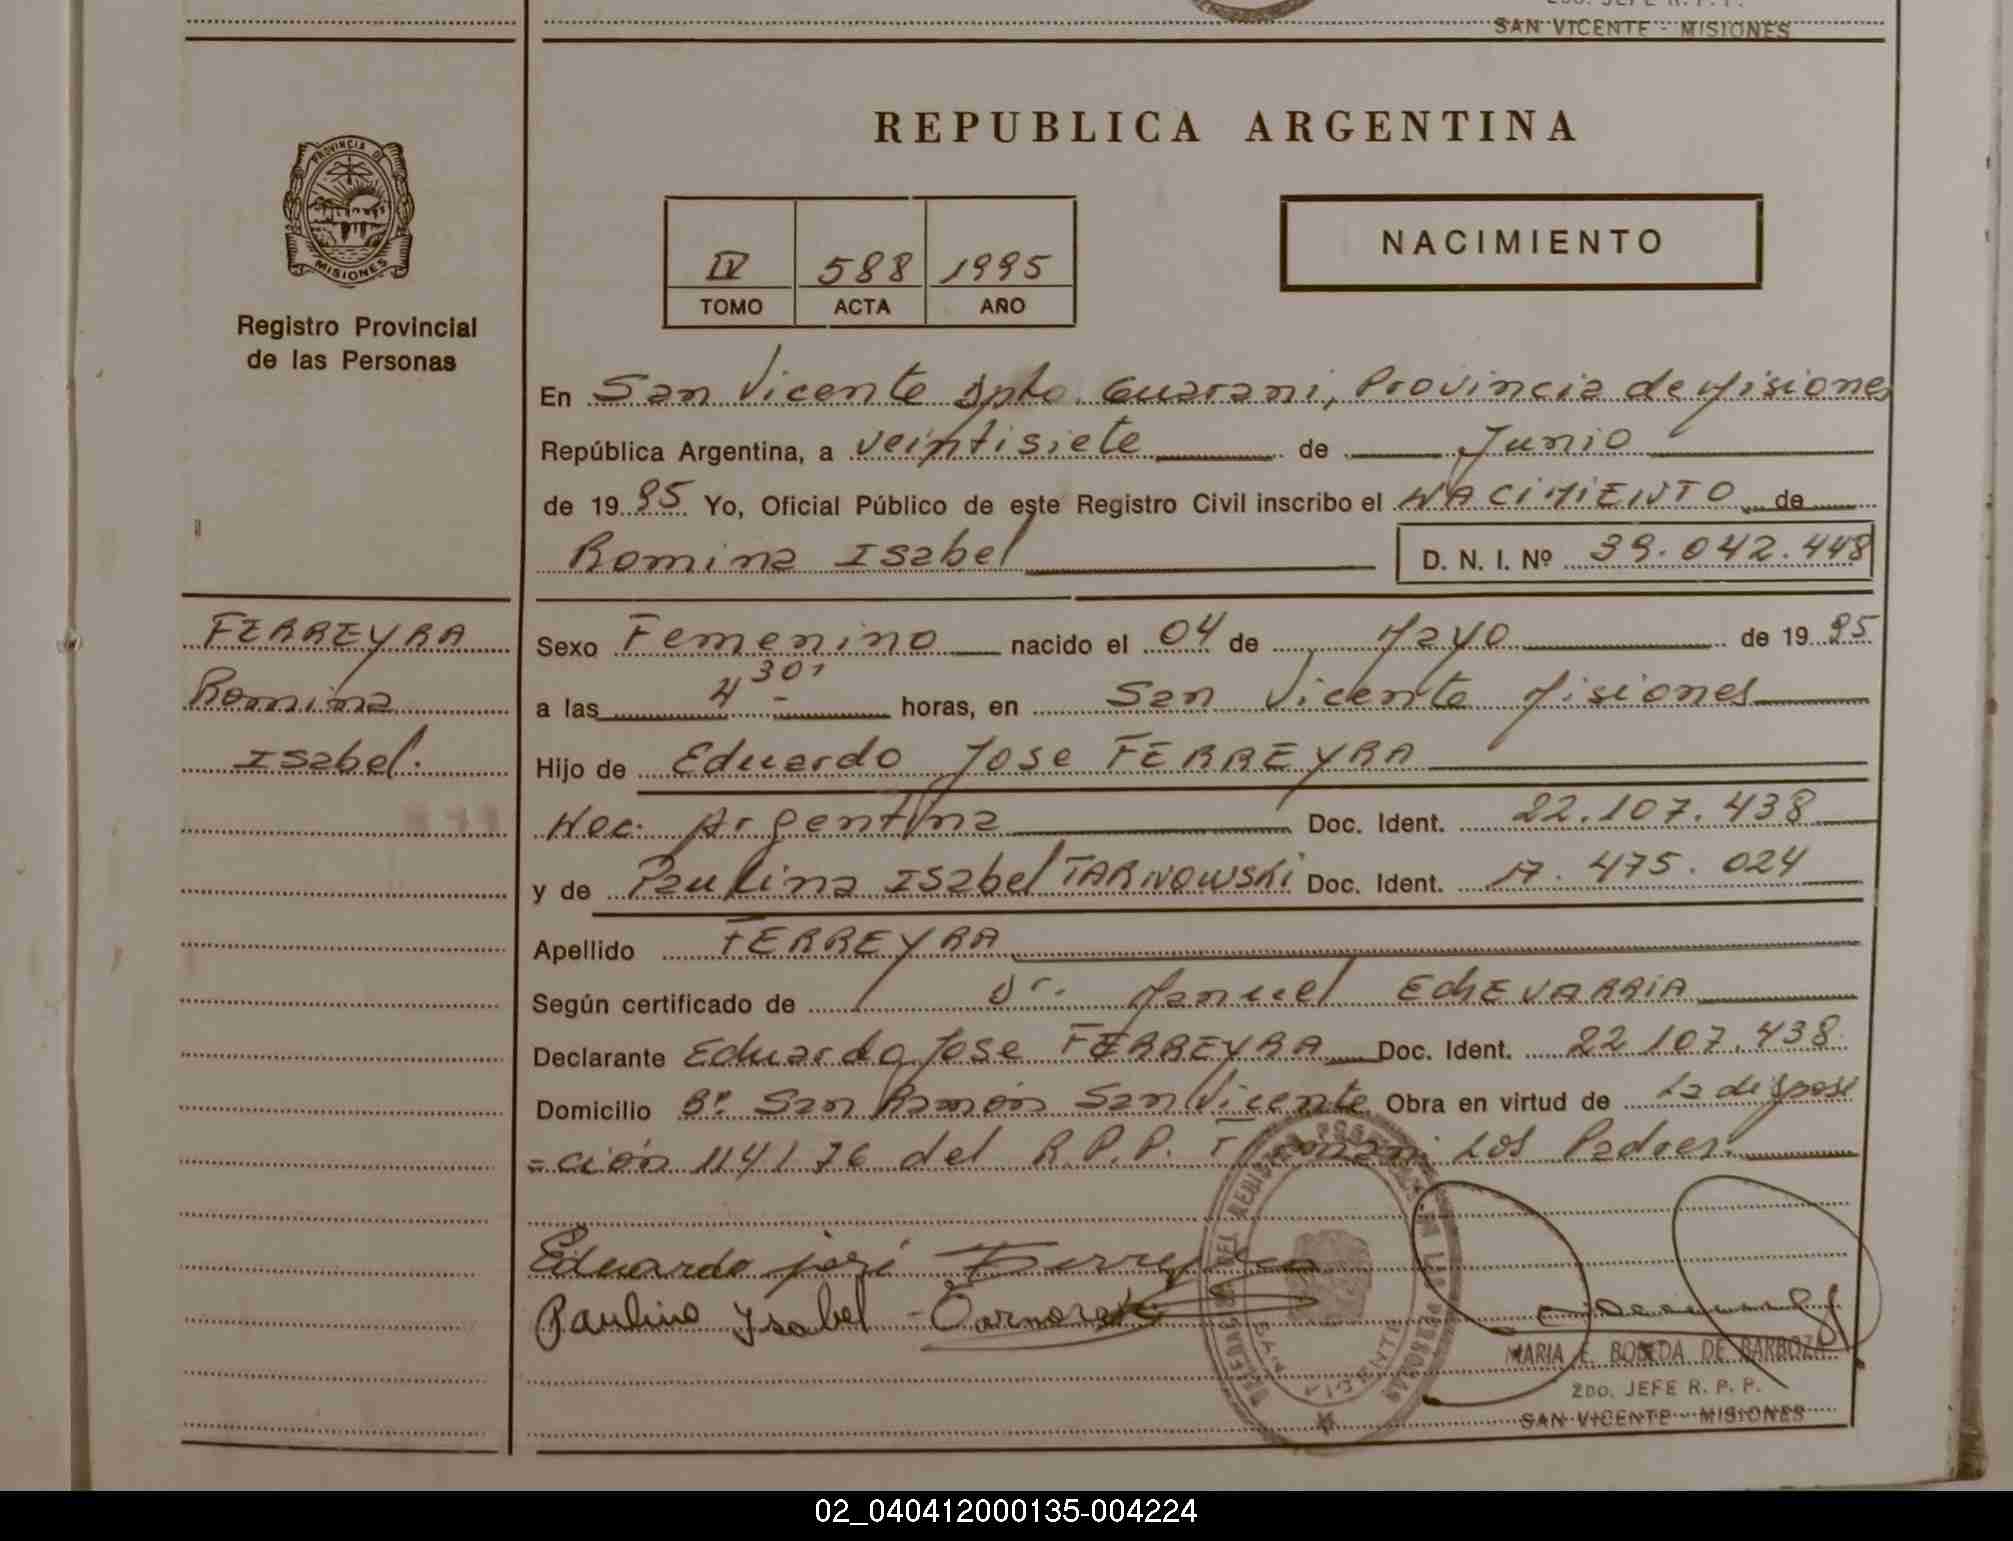 2DO. JEFE R. P. P.
SAN VICENTE - MISIONES
PROVINCIA DE
MISIONES
Registro Provincial
de las Personas
REPUBLICA ARGENTINA
IV 588 1995
TOMO ACTA AÑO
NACIMIENTO
En San Vicente Dpto. Guarani, Provincia de Misiones
República Argentina, a veintisiete de Junio
de 1995 Yo, Oficial Público de este Registro Civil inscribo el NACIMIENTO de
Romina Isabel D. N. I. Nº 39.042.448
FERREYRA
Romina
Isabel.
Sexo Femenino nacido el 04 de Mayo de 1995
a las 4 30' horas, en San Vicente Misiones
Hijo de Eduardo Jose FERREYRA
Nac. Argentina Doc. Ident. 22.107.438
y de Paulina Isabel TARNOWSKI Doc. Ident. 17.475.024
Apellido FERREYRA
Según certificado de Dr. Manuel ECHEVARRIA
Declarante Eduardo Jose FERREYRA Doc. Ident. 22 107.438
Domicilio Bº. San Ramón San Vicente Obra en virtud de La disposi
=ción 114/76 del R.P.P. Firman Los Padres.
Eduardo josé Ferreyra
Paulina Ysabel
MARIA E. BOBEDA DE BARBOZA
2DO. JEFE R. P. P.
SAN VICENTE - MISIONES
SAN VICENTE
02_040412000135-004224